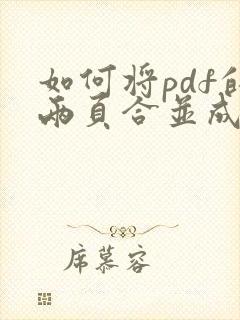 如何将pdf的
两页合并成
席慕容